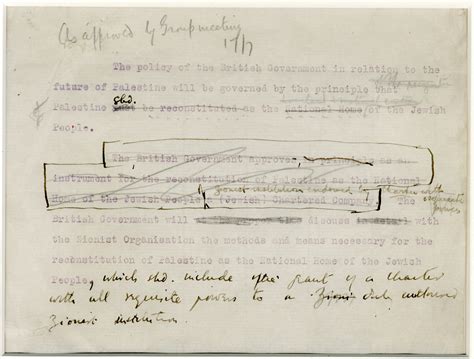 As approved by Group meeting
17/7
The policy of the British Government in relation to the
future of Palestine will be governed by the principle that
shd.
Palestine must be reconstituted as the national home of the Jewish
People.
The British Government approves, in principle as an
instrument for the reconstitution of Palestine as the National
of Zionist institution charter with
Home of the Jewish People, (Jewish) Chartered Company. The
British Government will discuss in detail
with the Zionist Organisation the methods and means necessary for the
reconstitution of Palestine as the National Home of the Jewish
People, which shd. include the grant of a charter
with all requisite powers to a Zioni duly authorised
Zionist institution.